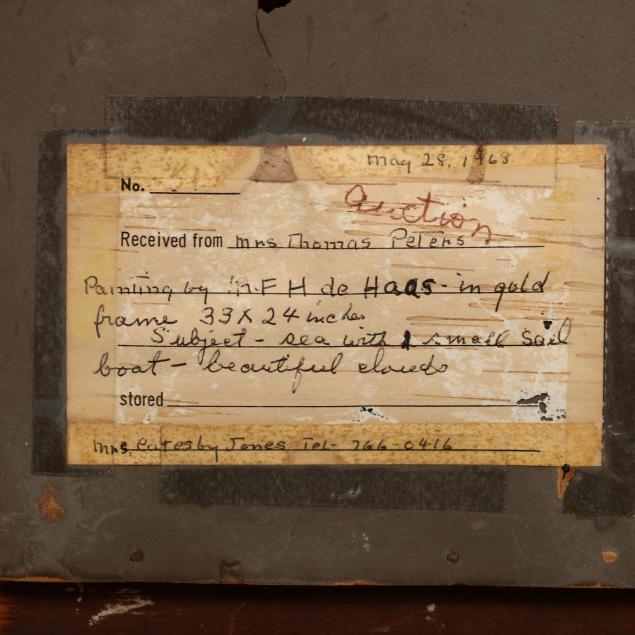 May 28, 1968
No.
Auction
Received from Mrs Thomas Peters
Painting by M F H de Haas - in gold
frame 33 x 24 inches
Subject - sea with 1 small sail
boat - beautiful clouds
stored
Mrs. Catesby Jones Tel- 266-0416